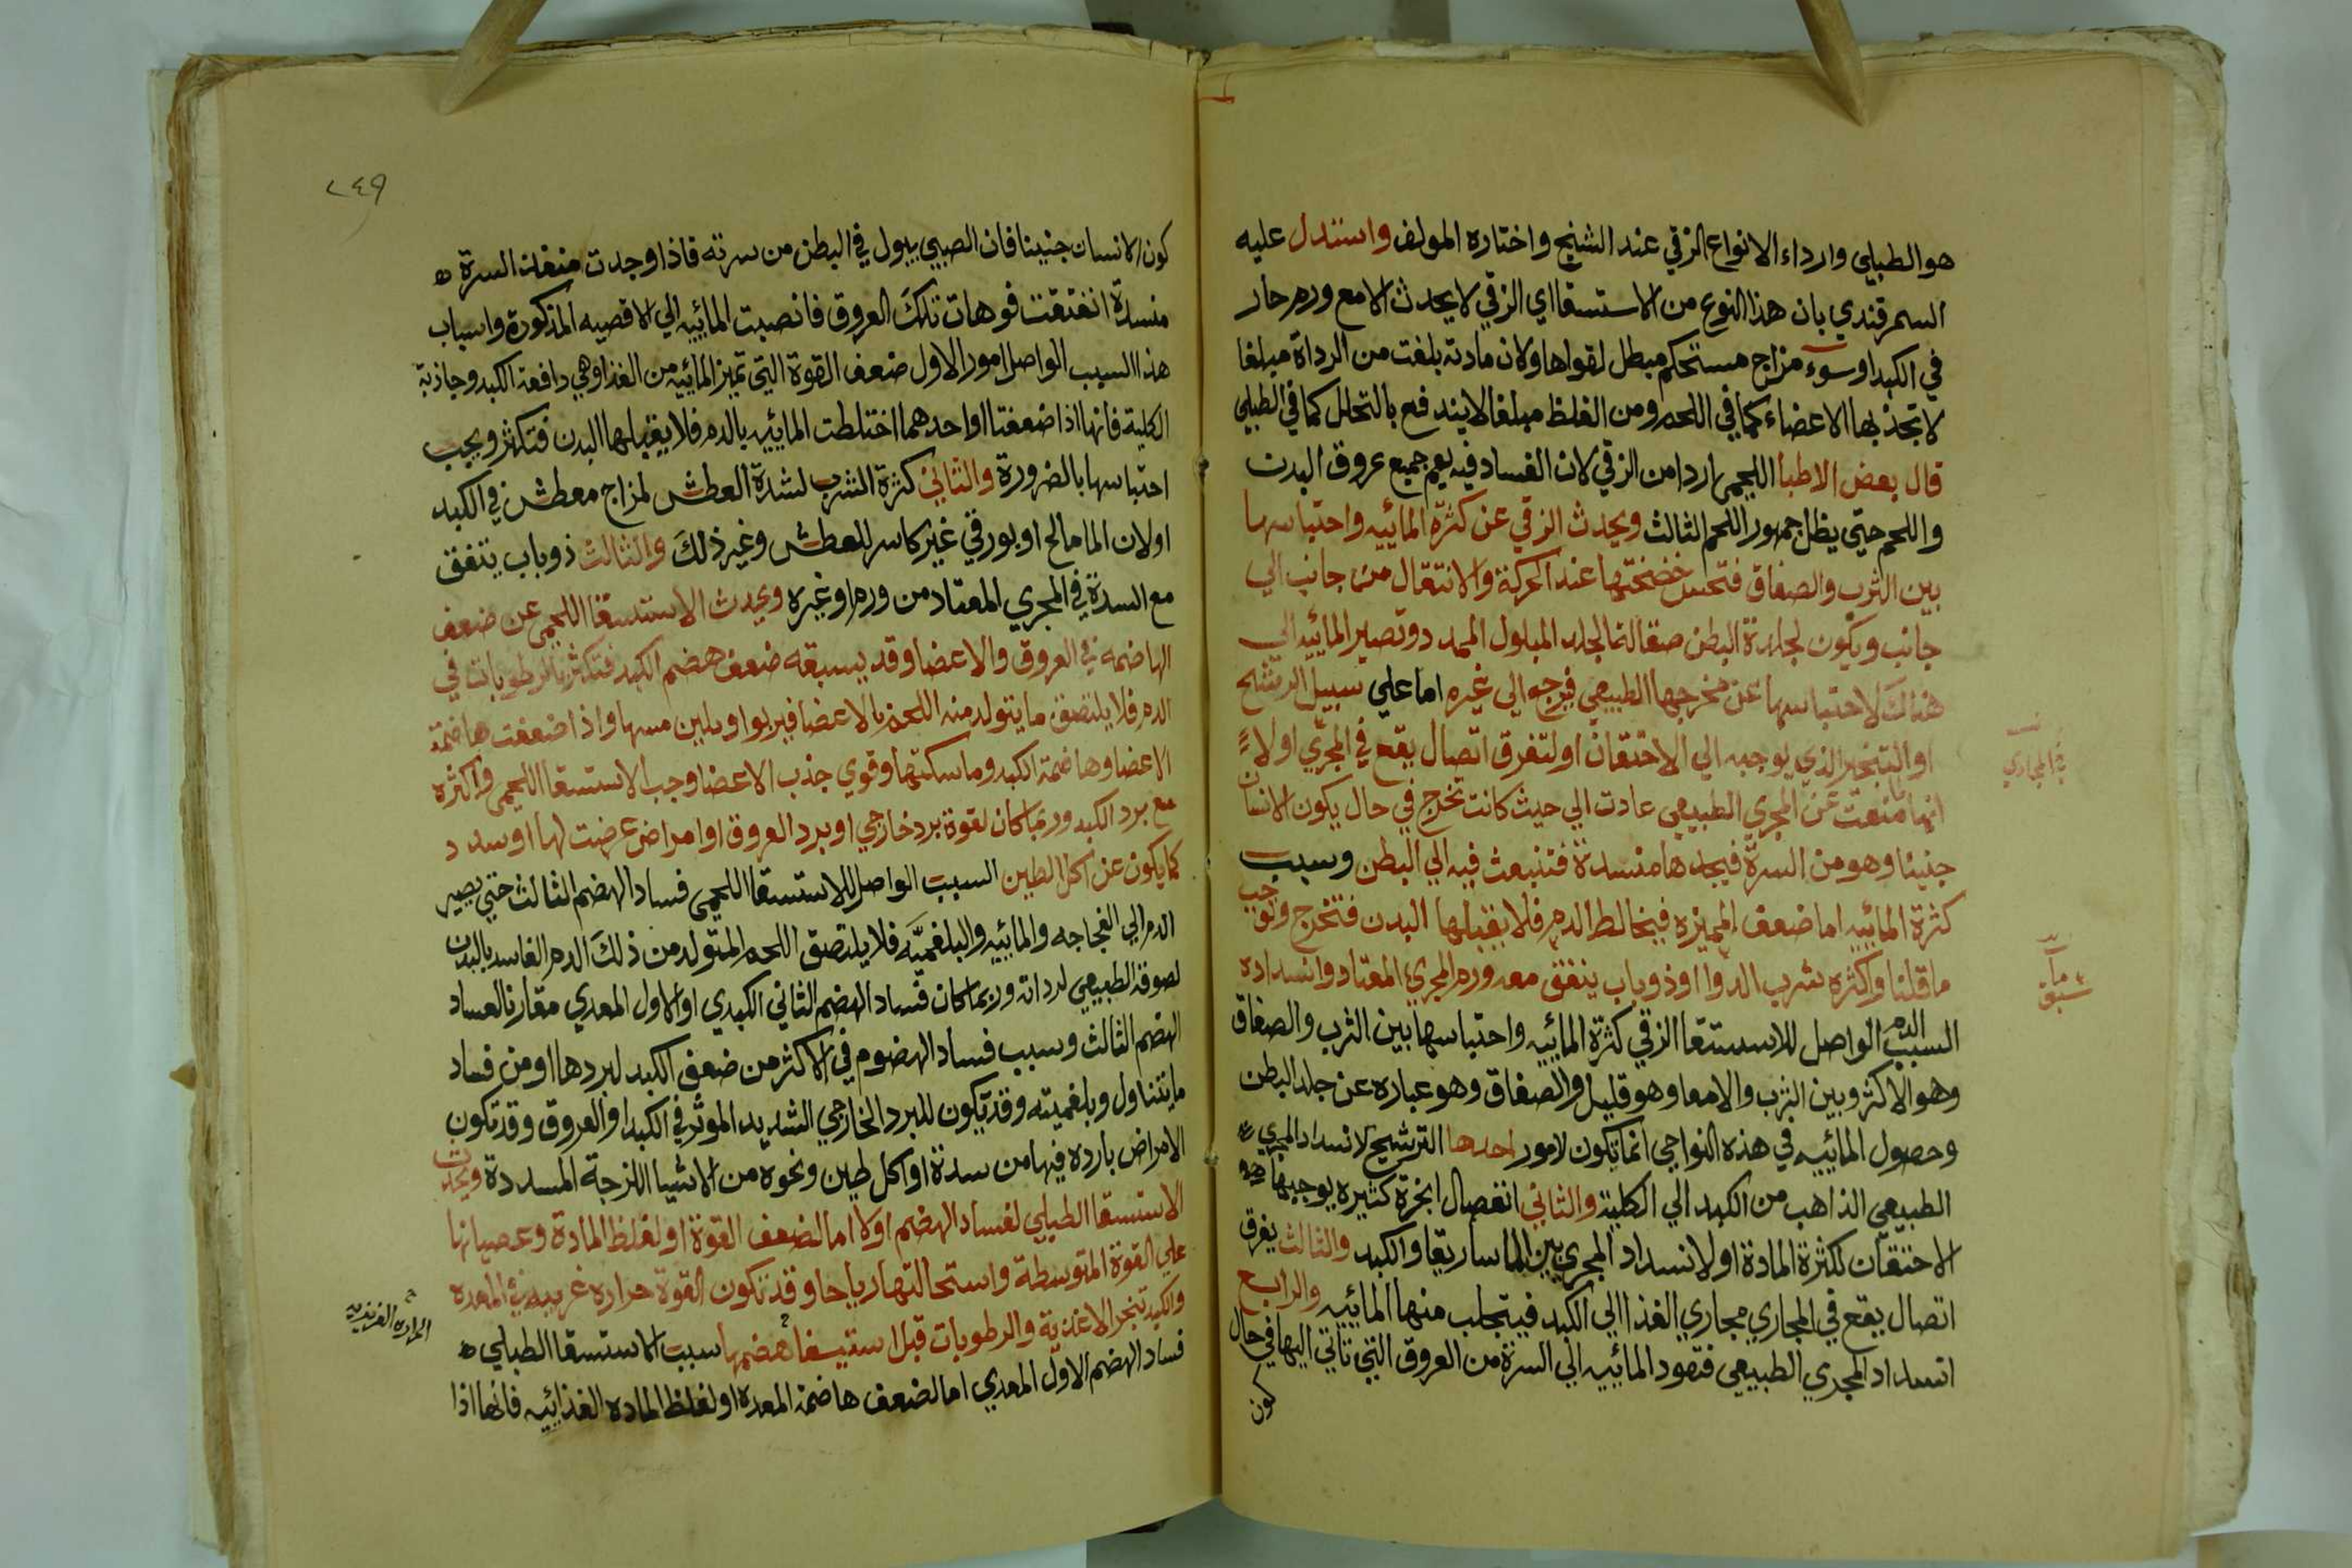 هو الطبلي وارداء الانواع الزقي عند الشيخ واختاره المولف واستدل عليه
السمرقندي بان هذا النوع من الاستسقا اي الزقي لا يحدث الا مع ورم حار
في الكبد او سوء مزاج مستحكم مبطل لقواها ولان مادته بلغت من الرداة مبلغا
لا تجذبها الاعضاء كما في اللحمي ومن الغلظ مبلغا لا يندفع بالتحلل كما في الطبلي
قال بعض الاطبا اللحمي اردا من الزقي لان الفساد فيه يعم جميع عروق البدن
واللحم حتي يظل جمهور اللحم الثالث ويحدث الزقي عن كثرة المائيه واحتباسها
بين الثرب والصفاق فتحس خضخضتها عند الحركة والانتقال من جانب الي
جانب ويكون لجلدة البطن صقالة الجلد المبلول الممدد وتصير المائيه الي
هناك لاحتباسها عن مخرجها الطبيعي فيرجع الي غيره اما علي سبيل الرشح
او التبخير الذي يوجبه الي الاحتقان او لتفرق اتصال يقع في المجري او لا
انها منعت عن المجري الطبيعي عادت الي حيث كانت تخرج في حال يكون الانسان
جنينا وهو من السرة فيجدها منسدة فتنبعث فيه الي البطن وسبب
كثرة المائيه اما ضعف المميزه فيخالط الدم فلا يقبلها البدن فتخرج وتوجب
ما قلنا واكثره شرب الدوا او ذوبان يتفق معه ورم المجري المعتاد وانسداده
السبب الواصل للاستسقا الزقي كثرة المائيه واحتباسها بين الثرب والصفاق
وهو الاكثر وبين الثرب والامعا وهو قليل والصفاق وهو عباره عن جلد البطن
وحصول المائيه في هذه النواحي انما تكون لامور احدها الترشيح لانسداد المجري
الطبيعي الذاهب من الكبد الي الكلية والثاني انفصال ابخرة كثيره يوجبها
الاحتقان لكثرة المادة او لانسداد المجري بين الماساريقا والكبد والثالث يفرق
اتصال يقع في المجاري مجاري الغذا الي الكبد فيتحلب منها المائيه والرابع
انسداد المجري الطبيعي فتعود المائيه الي السرة من العروق التي تاتي اليها في حال
كون
في المجاري
ما سبق
٢٤٩
كون الانسان جنينا فان الصبي يبول في البطن من سرته فاذا وجدت منفذ السرة
منسدة انفتقت فوهات تلك العروق فانصبت المائيه الي الاقضيه المذكورة واسباب
هذا السبب الواصل امور الاول ضعف القوة التي تميز المائيه من الغذا وهي دافعة الكبد وجاذبة
الكلية فانها اذا ضعفتا او احدهما اختلطت المائيه بالدم فلا يقبلها البدن فتكثر ويجب
احتباسها بالضرورة والثاني كثرة الشرب لشدة العطش لمزاج معطش في الكبد
او لان الما مالح او بورقي غير كاسر للعطش وغير ذلك والثالث ذوبان يتفق
مع السدة في المجري المعتاد من ورم او غيره ويحدث الاستسقا اللحمي عن ضعف
الهاضمه في العروق والاعضا وقد يسبقه ضعف هضم الكبد فتكثر الرطوبات في
الدم فلا يلتصق ما يتولد منه اللحم بالاعضا فيربوا ويلين مسها واذا ضعفت هاضمة
الاعضا وهاضمة الكبد وماسكتها وقوي جذب الاعضا وجب الاستسقا اللحمي واكثره
مع برد الكبد وربما كان لقوة برد خارجي او برد العروق او امراض عرضت لها او سدد
كما يكون عن اكل الطين السبب الواصل للاستسقا اللحمي فساد الهضم الثالث حتي يصير
الدم الي الفجاجه والمائيه والبلغميه فلا يلتصق اللحم المتولد من ذلك الدم الفاسد بالبدن
لصوقه الطبيعي لرداته وربما كان فساد الهضم الثاني الكبدي او الاول المعدي مقارنا لفساد
الهضم الثالث وسبب فساد الهضوم في الاكثر من ضعف الكبد لبردها او من فساد
ما يتناول وبلغميته وقد يكون للبرد الخارجي الشديد الموثر في الكبد او العروق وقد تكون
الامراض بارده فيها من سدة او اكل طين ونحوه من الاشيا اللزجة المسددة ويحدث
الاستسقا الطبلي لفساد الهضم اولا اما لضعف القوة او لغلظ المادة وعصيانها
علي القوة المتوسطة واستحالتها رياحا وقد تكون القوة حراره غريبه في المعده
والكبد تبخر الاغذية والرطوبات قبل استيفا هضمها سبب الاستسقا الطبلي
فساد الهضم الاول المعدي اما لضعف هاضمة المعدة او لغلظ الماده الغذائيه فانها اذا